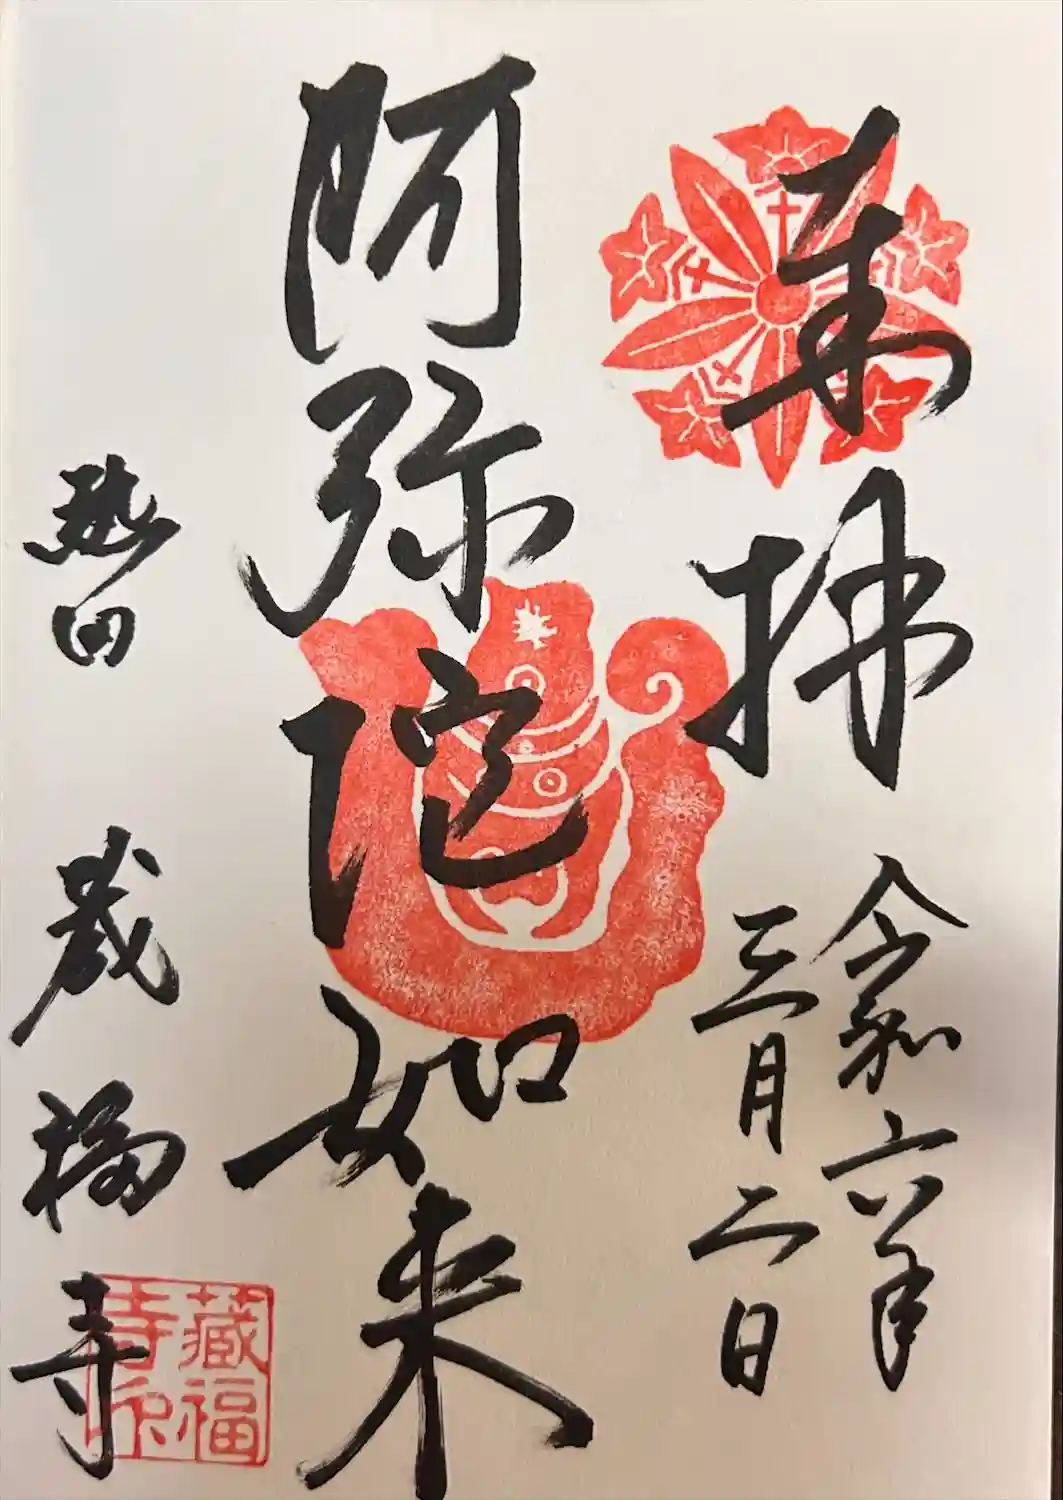 奉拝
令和六年
三月二日
阿弥陀如来
熱田 蔵福寺
蔵福
寺印